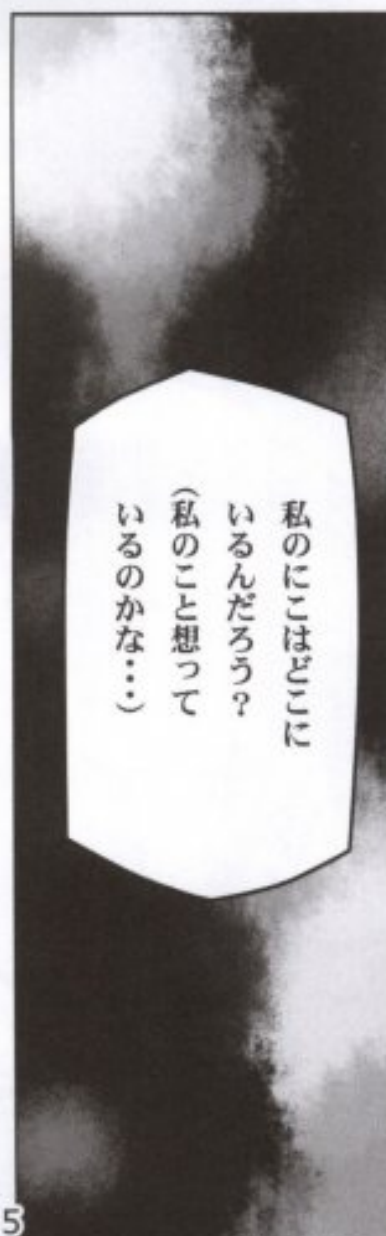 私のにこはどこに
いるんだろう？
（私のこと想って
いるのかな・・・）
5